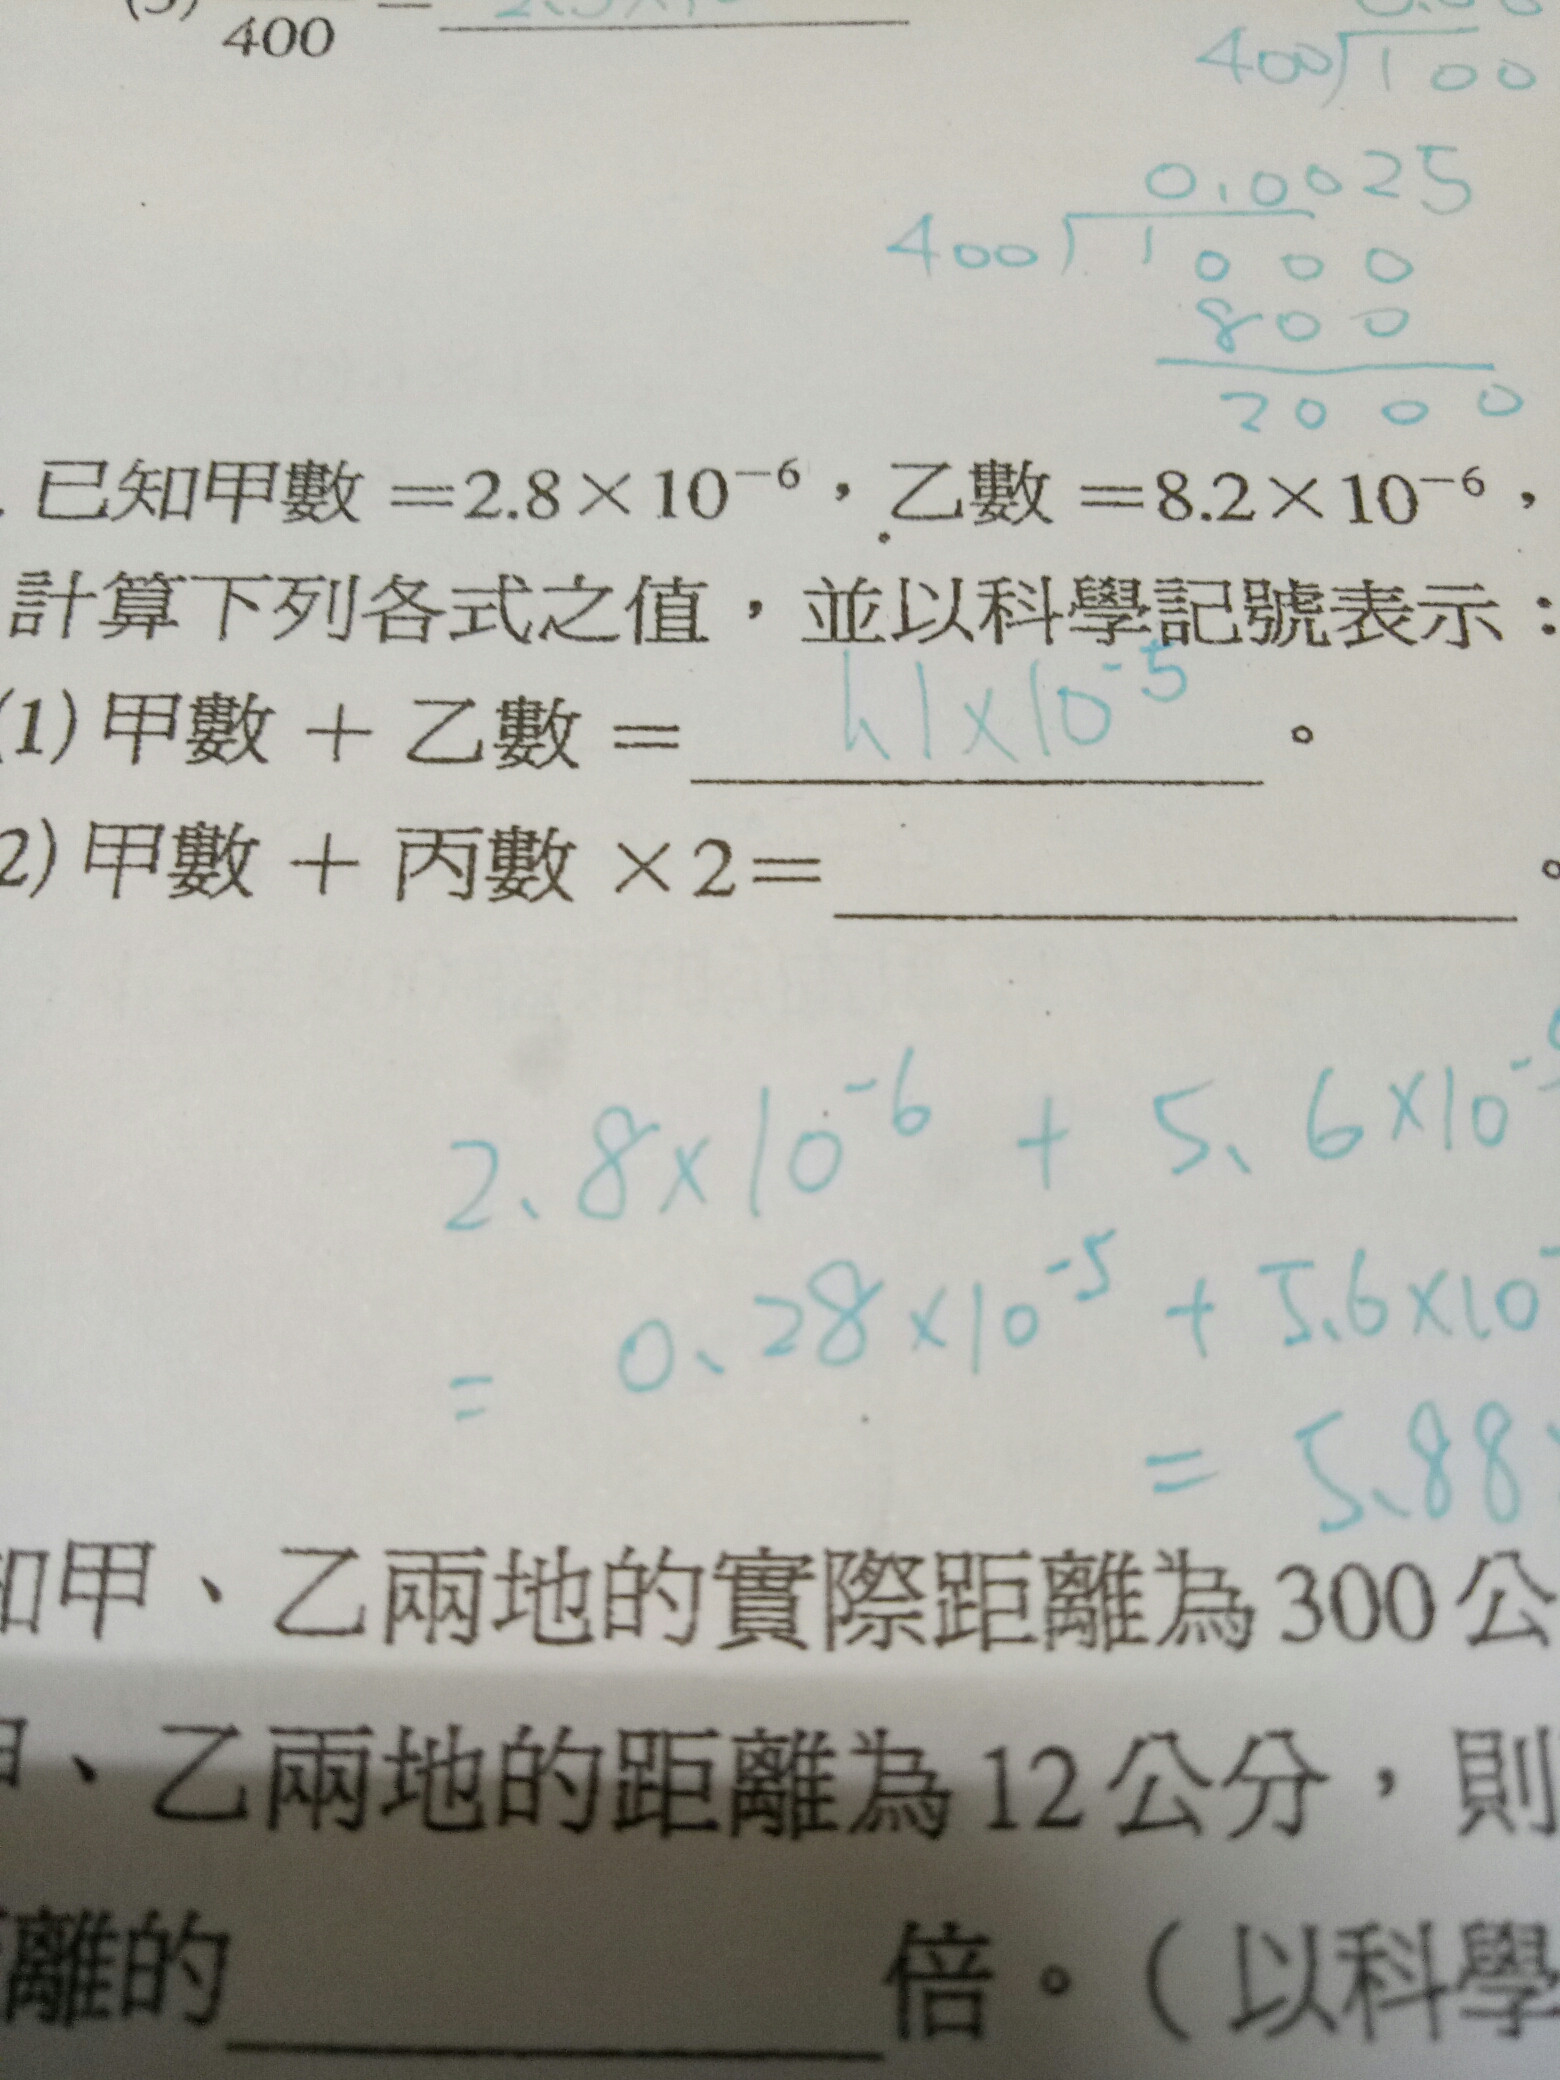 400
400 100
0.0025
400 1000
800
2000
已知甲數=2.8×10⁻⁶,乙數=8.2×10⁻⁶,
計算下列各式之值,並以科學記號表示:
(1)甲數+乙數= 1.1×10⁻⁵ 。
2)甲數+丙數×2= 。
2.8×10⁻⁶ + 5.6×10
= 0.28×10⁻⁵ + 5.6×10
= 5.88
知甲、乙兩地的實際距離為300公
甲、乙兩地的距離為12公分,則
離的 倍。(以科學